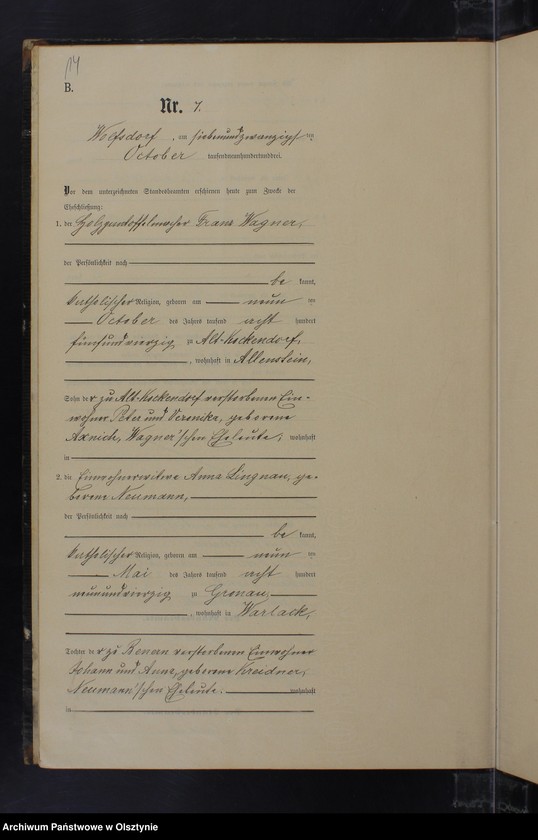 14
B.
Nr. 7.
Wolfsdorf, am siebenundzwanzigsten
October tausendneunhundertunddrei.
Vor dem unterzeichneten Standesbeamten erschienen heute zum Zwecke der
Eheschließung:
1. der Holzpantoffelmacher Franz Wagner,
der Persönlichkeit nach
be kannt,
katholischer Religion, geboren am neunten
October des Jahres tausend acht hundert
fünfundvierzig zu Alt-Kockendorf,
, wohnhaft in Allenstein,
Sohn der zu Alt-Kockendorf verstorbenen Ein-
wohner Peter und Veronika, geborene
Axnich, Wagner'schen Eheleute, wohnhaft
in
2. die Einwohnerwitwe Anna Lingnau, ge-
borene Neumann,
der Persönlichkeit nach
be kannt,
katholischer Religion, geboren am neunten
Mai des Jahres tausend acht hundert
neunundvierzig zu Gronau,
, wohnhaft in Warlack,
Tochter der zu verstorbenen Einwohner
Johann und Anna, geborene Kreidner,
Neumann'schen Eheleute. wohnhaft
in
Archiwum Państwowe w Olsztynie